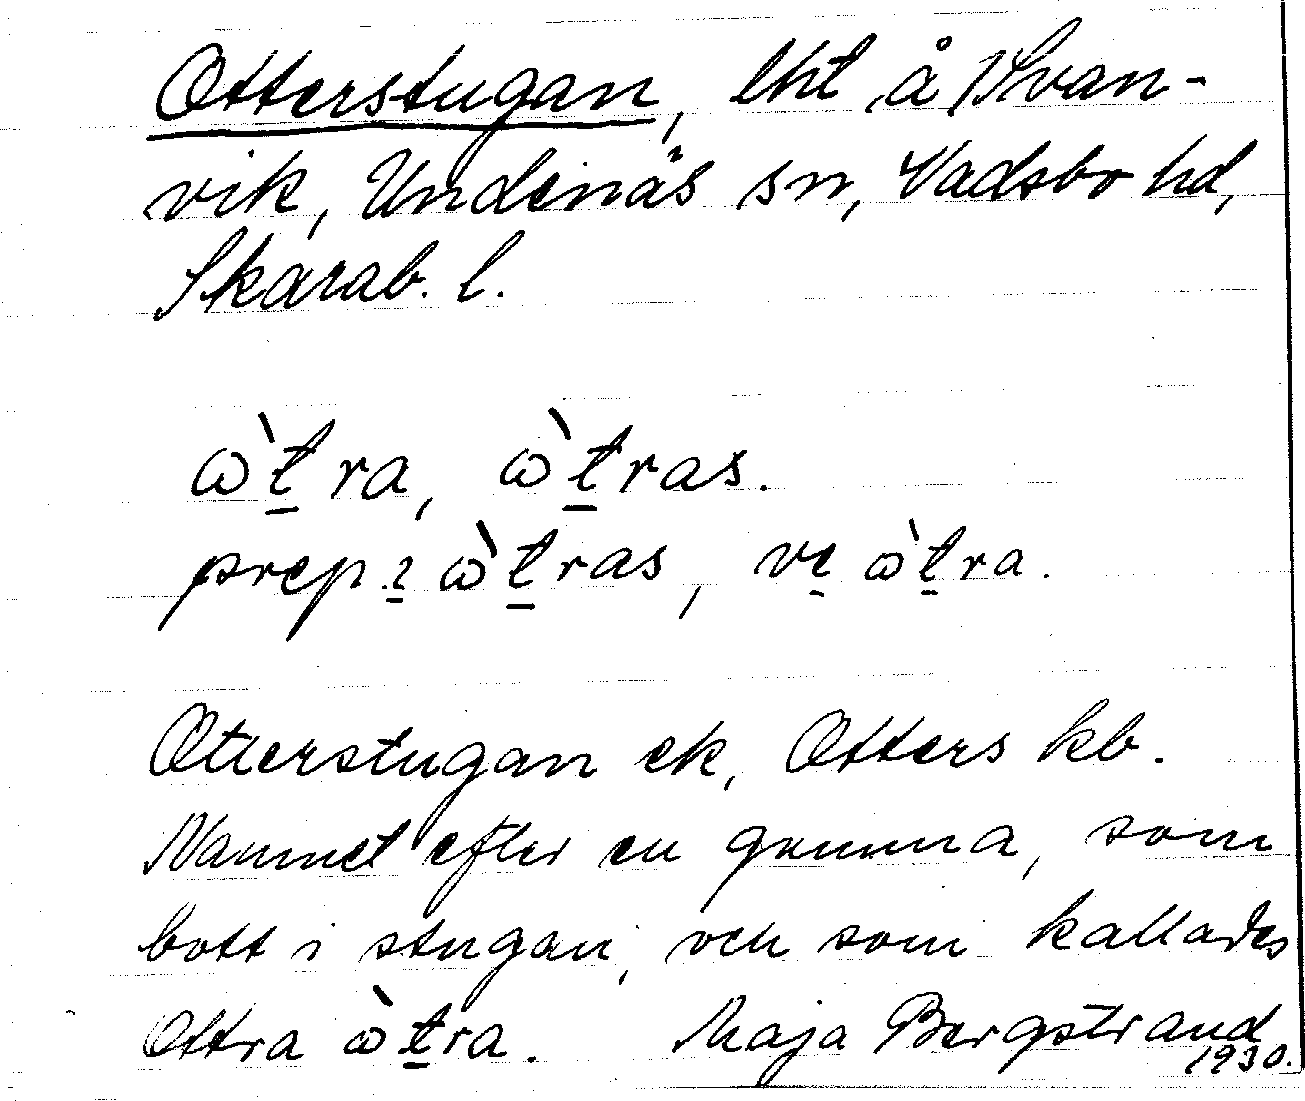 Otterstugan, lht å Svan-
vik, Undenäs sn, Vadsbo hd,
Skarab. l.
ὼt̲ra, ὼt̲ras.
prep. ɩ̲ ὼt̲ras, ve̲ ὼt̲ra.
Otterstugan ek, Otters kb.
Namnet efter en gumma, som
bott i stugan, och som kallades
Ottra ὼt̲ra. Maja Bergstrand
1930.